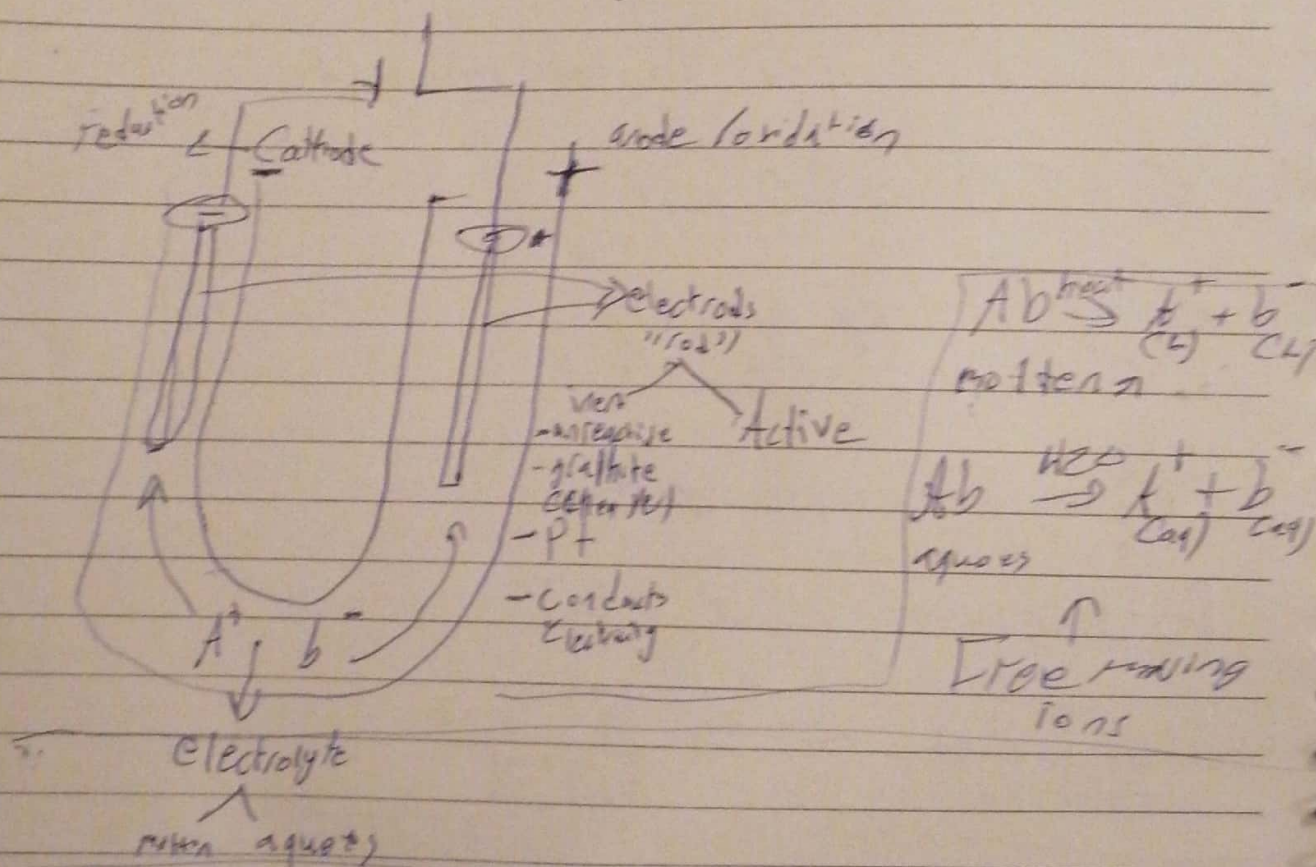 reduction
Cathode
-
+
anode / oxidation
electrods
"rod"
Active
- unreactive
- graphite
- Pt
- Conducts
A⁺ b⁻
electrolyte
molten aquoes
Ab heat → A⁺(L) + b⁻(L)
molten
Ab H2O → A⁺(aq) + b⁻(aq)
aquoes
↑
Free moving
ions